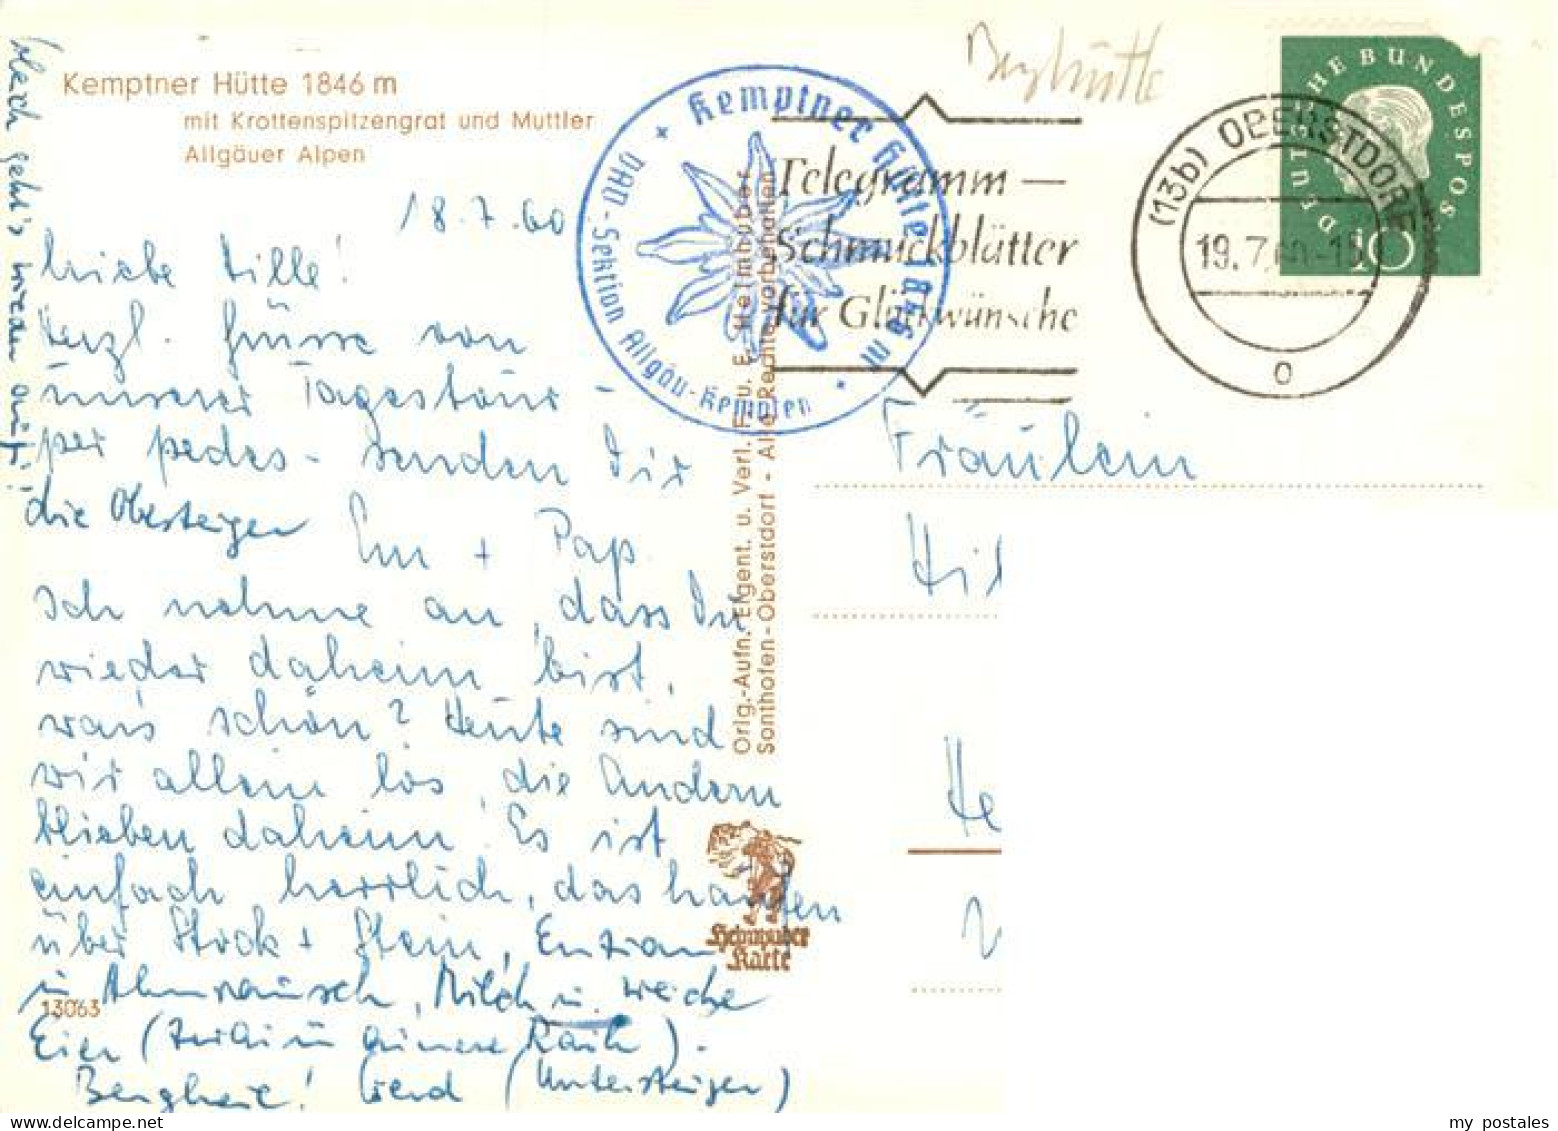 Kemptner Hütte 1846 m
mit Krottenspitzengrat und Muttler
Allgäuer Alpen
18.7.60
Liebe Hille!
Herzl. Grüsse von
unserer Tagestour -
per pedes - senden Dir
die Obersteiger
Em + Pap
Ich nehme an, dass Du
wieder daheim bist,
war's schön? Heute sind
wir allein los, die Andern
blieben daheim. Es ist
einfach herrlich, das
über Stock + Stein, Enzian
u. Almrausch, Milch u. weiche
Eier
Bergheil! (Untersteiger)
Mach geht's wieder
13063
DAV-Sektion Allgäu-Kempten
+ Kemptner Hütte 1846 m
Orig.-Aufn. Eigent. u. Verl. F. u. E. Heimhuber
Sonthofen-Oberstdorf - Alle Rechte vorbehalten
Heimhuber
Karte
Berghütte
Telegramm —
Schmuckblätter
für Glückwünsche
(13b) OBERSTDORF
19.7.60-18
DEUTSCHE BUNDESPOST
10
Fräulein
Hil
He
my postales